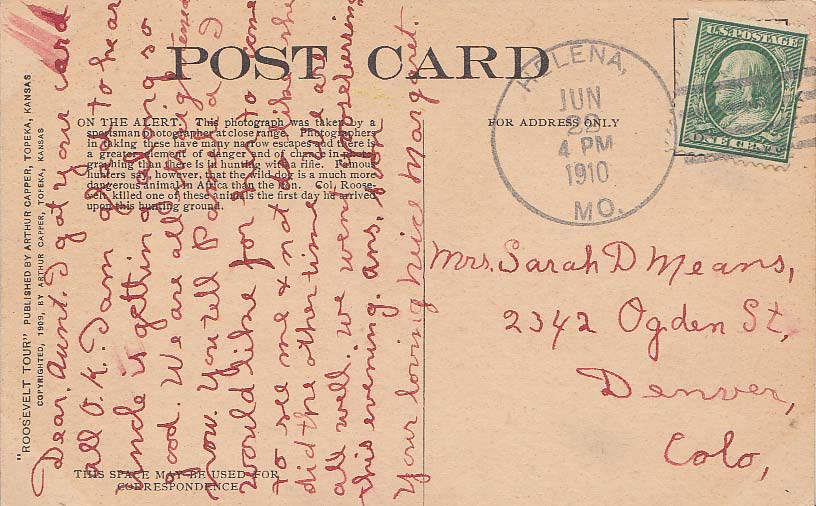 POST CARD
ON THE ALERT. This photograph was taken by a
sportsman photographer at close range. Photographers
in taking these have many narrow escapes and there is
a greater element of danger and of chance in photo-
graphing than there is in hunting with a rifle. Famous
hunters say, however, that the wild dog is a much more
dangerous animal in Africa than the lion. Col, Roose-
velt killed one of these animals the first day he arrived
upon this hunting ground.
THIS SPACE MAY BE USED FOR
CORRESPONDENCE
"ROOSEVELT TOUR" PUBLISHED BY ARTHUR CAPPER, TOPEKA, KANSAS
COPYRIGHTED, 1909, BY ARTHUR CAPPER, TOPEKA, KANSAS
Dear, Aunt. I got your card
all O.K. I am glad to hear
Uncle is getting along so
good. We are all
now. You tell Papa I
would like for him to come
to see me & not do like she
did the other time. We are
all well. We went
this evening. Ans. soon
Your loving neice Margaret.
FOR ADDRESS ONLY
HELENA,
JUN
22
4 PM
1910
MO.
U.S. POSTAGE
ONE CENT
Mrs. Sarah D Means,
2342 Ogden St,
Denver,
Colo,